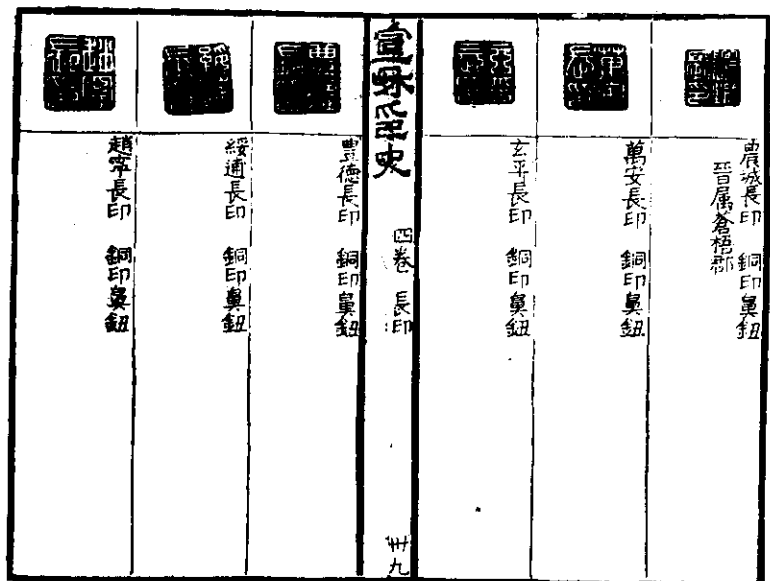 農城長印 銅印鼻鈕
晉属蒼梧郡
萬安長印 銅印鼻鈕
玄平長印 銅印鼻鈕
宣和印史
四卷 長印
卌九
豐德長印 銅印鼻鈕
綏通長印 銅印鼻鈕
趙寧長印 銅印鼻鈕